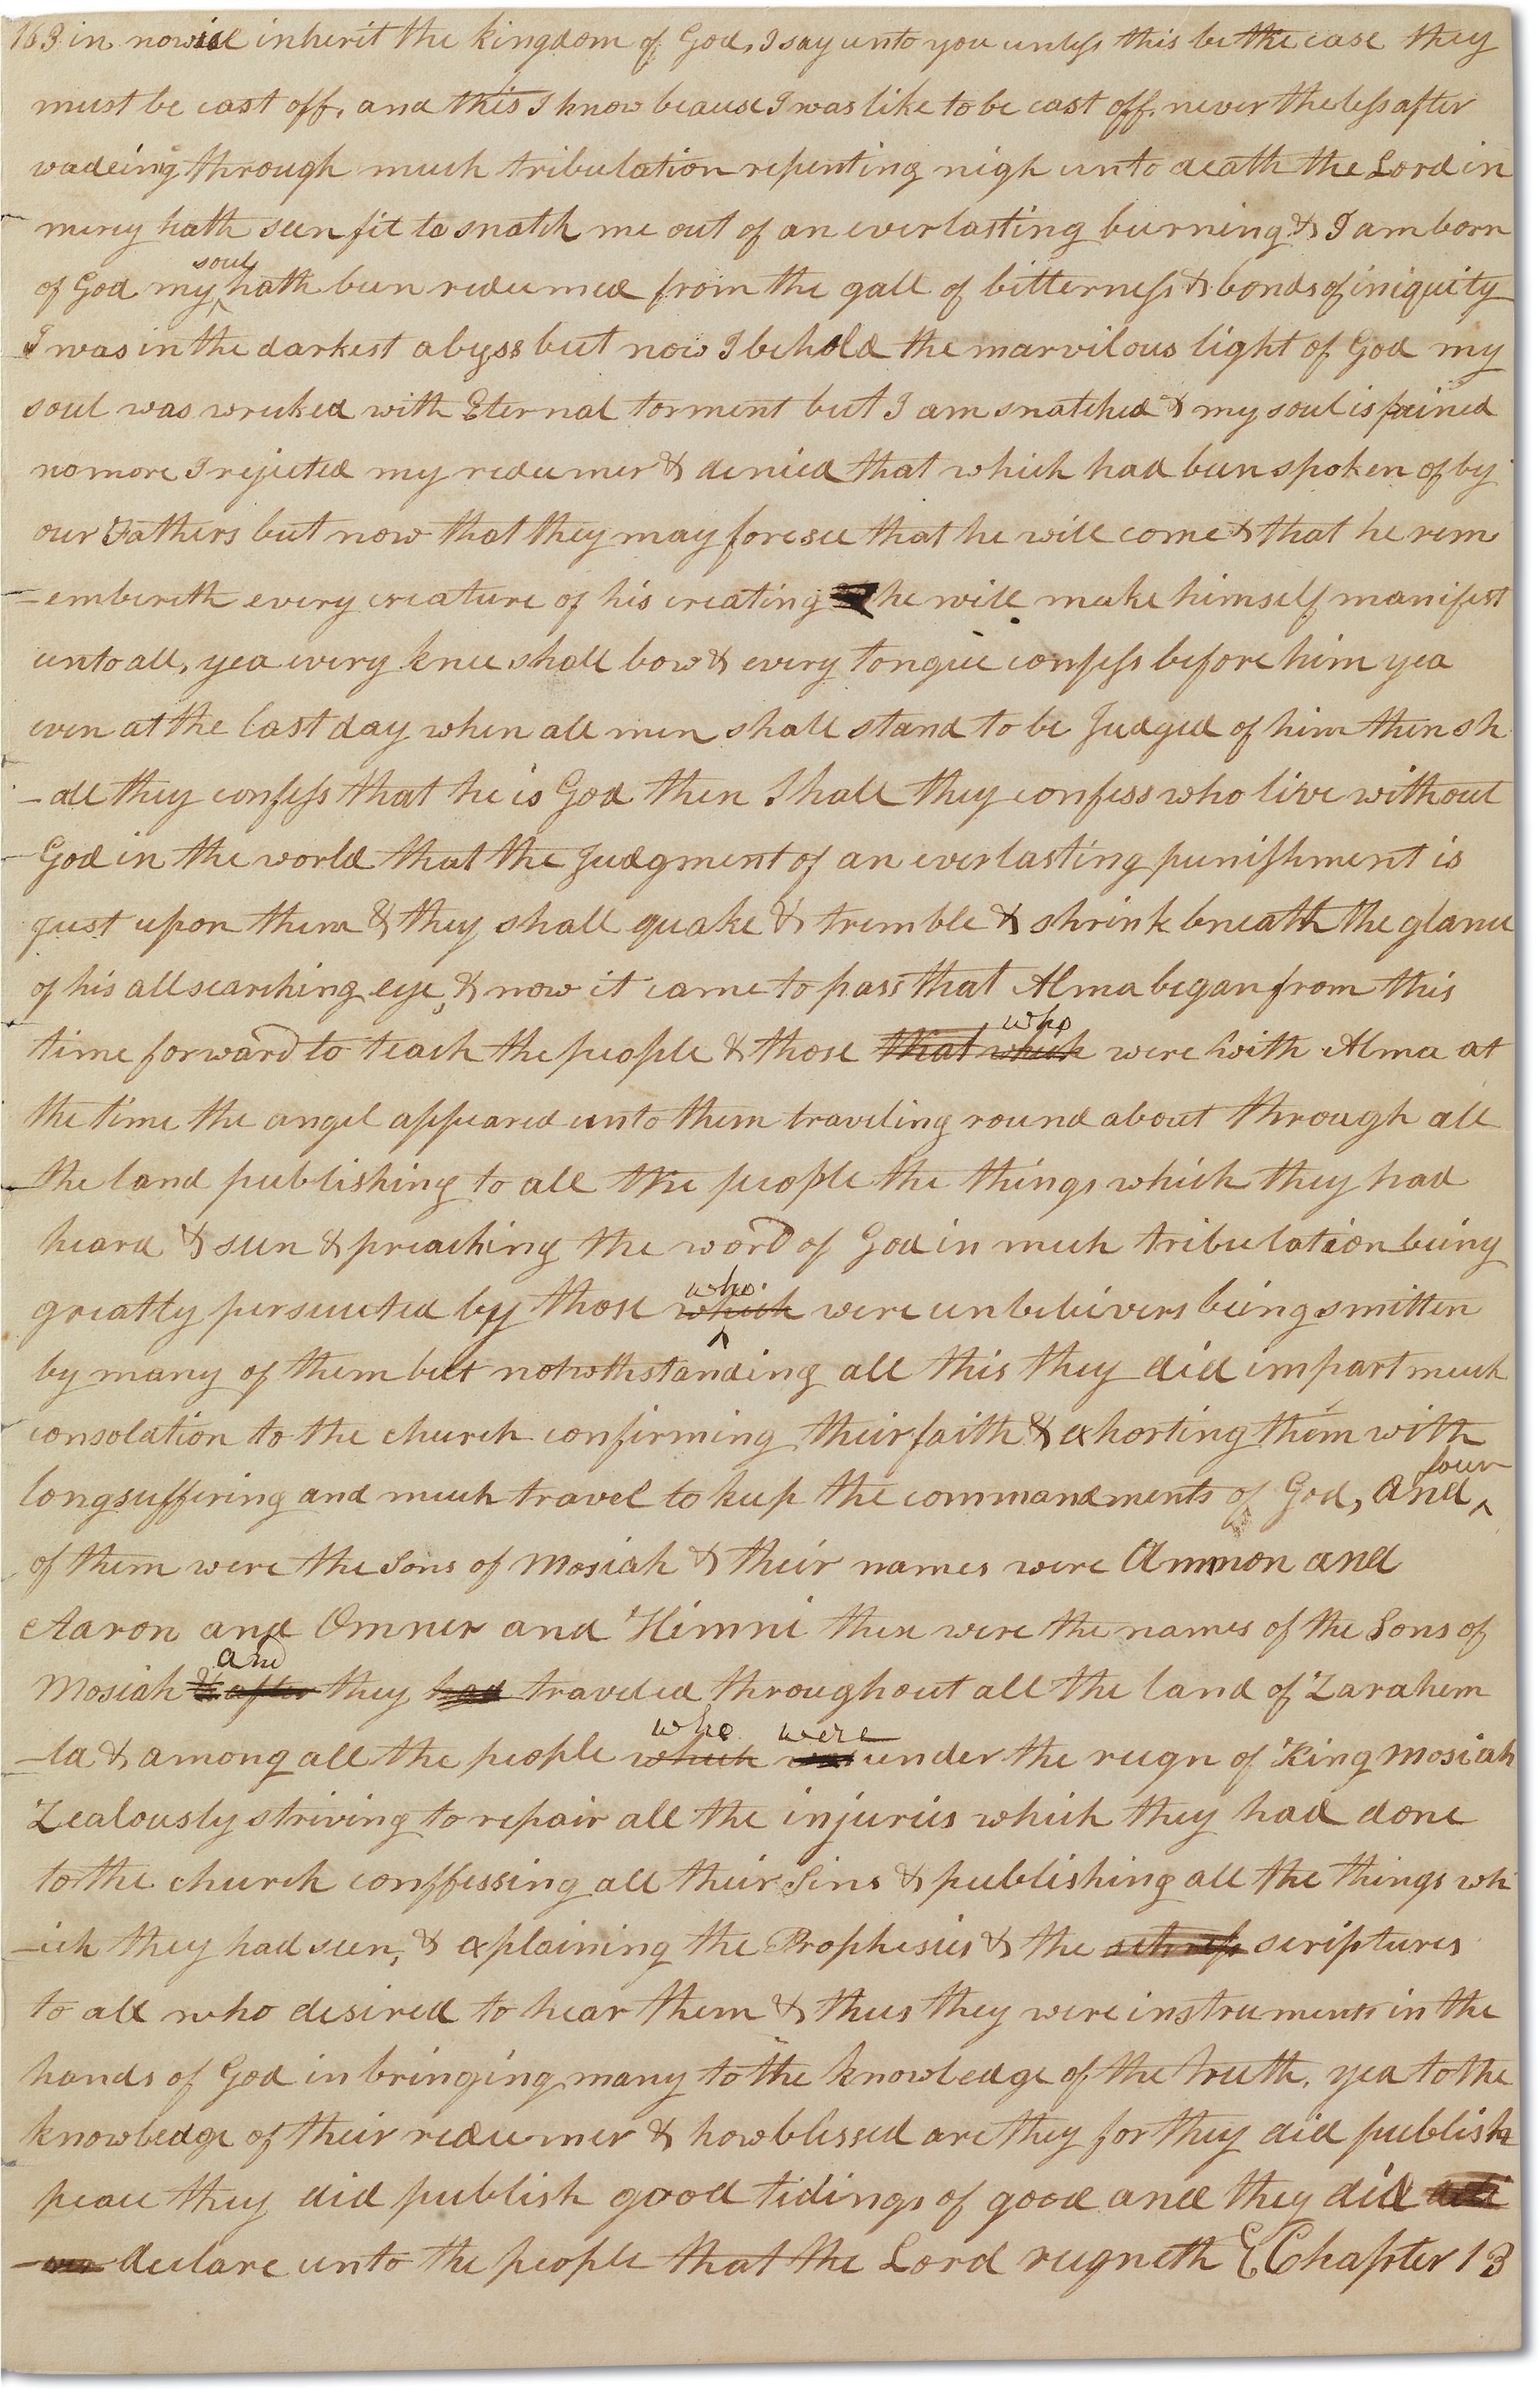 163 in nowise inherit the kingdom of God, I say unto you unless this be the case they
must be cast off, and this I know beause I was like to be cast off. never theless after
wadeing through much tribulation repenting nigh unto death the Lord in
mercy hath seen fit to snatch me out of an everlasting burning & I am born
soul
of God my ^ hath been redeemed from the gall of bitterness & bonds of iniquity
I was in the darkest abyss but now I behold the marvilous light of God my
soul was wrecked with Eternal torment but I am snatched & my soul is pained
no more I rejected my redeemer & denied that which had been spoken of by
our Fathers but now that they may foresee that he will come & that he rem
-embereth every creature of his creating he will make himself manifest
unto all, yea every knee shall bow & every tongue confess before him yea
even at the last day when all men shall stand to be Judged of him then sh
-all they confess that he is God then Shall they confess who live without
God in the world that the Judgment of an everlasting punishment is
just upon them & they shall quake & tremble & shrink bneath the glance
of his all searching eye, & now it came to pass that Alma began from this
who
time forward to teach the people & those that which were with Alma at
the time the angel appeared unto them traveling round about through all
the land publishing to all the people the things which they had
heard & seen & preaching the word of God in much tribulation being
who
greatly persecuted by those which ^ were unbelievers being smitten
by many of them but notwothstanding all this they did impart much
consolation to the church confirming their faith & exhorting them with
four
longsuffering and much travel to keep the commandments of God, and ^
of them were the Sons of Mosiah & their names were Ammon and
Aaron and Omner and Himni these were the names of the Sons of
and
Mosiah & after they had traveled throughout all the land of Zarahem
who were
-la & among all the people which under the reign of King Mosiah
Zealously striving to repair all the injuries which they had done
to the church conffessing all their Sins & publishing all the things wh
-ich they had seen, & explaining the Prophesies & the scriptures
to all who desired to hear them & thus they were instruments in the
hands of God in bringing many to the knowledge of the truth, yea to the
knowledge of their redeemer & how blessed are they for they did publish
peace they did publish good tidings of good and they did
declare unto the people that the Lord reigneth Chapter 13